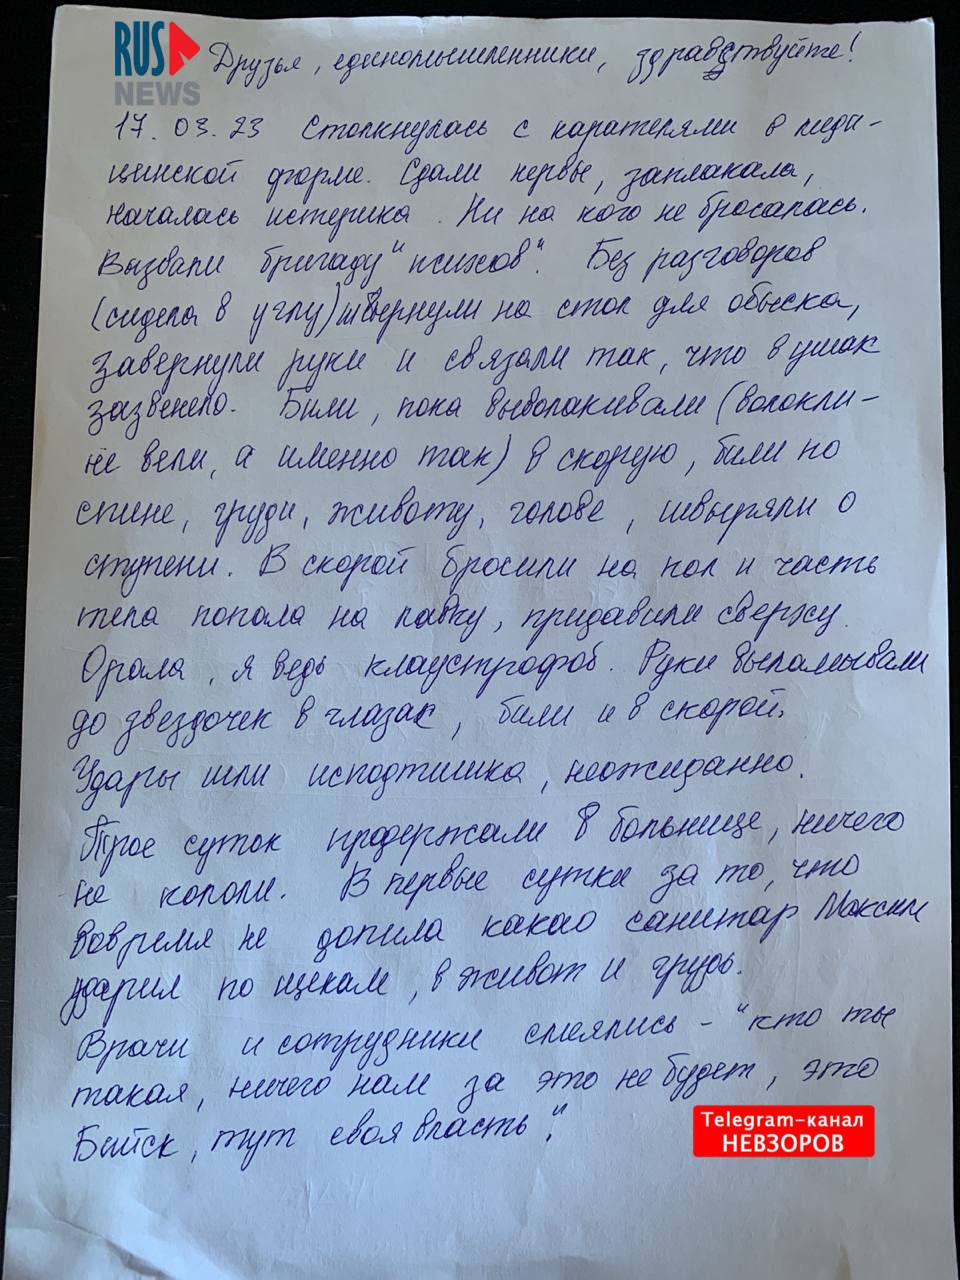 RUS
NEWS
Друзья, единомышленники, здравствуйте!
17.03.23 Столкнулась с карателями в меди-
цинской форме. Сдали нервы, заплакала,
началась истерика. Ни на кого не бросалась.
Вызвали бригаду "психов". Без разговоров
(сидела в углу) швырнули на стол для обыска,
завернули руки и связали так, что в ушах
зазвенело. Били, пока выволакивали (волокли -
не вели, а именно так) в скорую, били по
спине, груди, животу, голове, швыряли о
ступени. В скорой бросили на пол и часть
тела попала на лавку, придавили сверху.
Орала, я ведь клаустрофоб. Руки выламывали
до звездочек в глазах, били и в скорой.
Удары шли исподтишка, неожиданно.
Трое суток продержали в больнице, ничего
не кололи. В первые сутки за то, что
вовремя не допила какао санитар Максим
ударил по щекам, в живот и грудь.
Врачи и сотрудники смеялись - "кто ты
такая, ничего нам за это не будет, это
Бийск, тут своя власть".
Telegram-канал
НЕВЗОРОВ